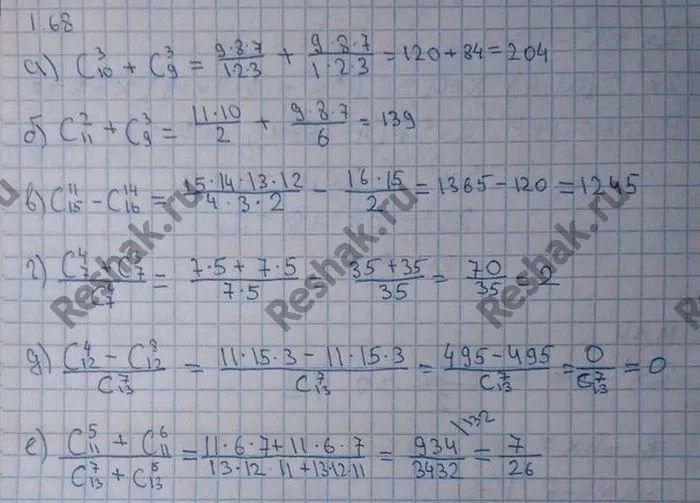 1.68
а) C₁₀³ + C₉³ = 9·8·7/1·2·3 + 9·8·7/1·2·3 = 120 + 84 = 204
б) C₁₁² + C₉³ = 11·10/2 + 9·8·7/6 = 139
в) C₁₅¹¹ - C₁₆¹⁴ = 15·14·13·12/4·3·2 - 16·15/2 = 1365 - 120 = 1245
г) C₇⁴ + C₇³/C₇⁴ = 7·5 + 7·5/7·5 = 35 + 35/35 = 70/35 = 2
д) C₁₂⁴ - C₁₂⁸/C₁₃⁷ = 11·15·3 - 11·15·3/C₁₃⁷ = 495 - 495/C₁₃⁷ = 0/C₁₃⁷ = 0
е) C₁₁⁵ + C₁₁⁶/C₁₃⁷ + C₁₃⁶ = 11·6·7 + 11·6·7/13·12·11 + 13·12·11 = 934/3432 = 7/26
Reshak.ru
Reshak.ru
Reshak.ru